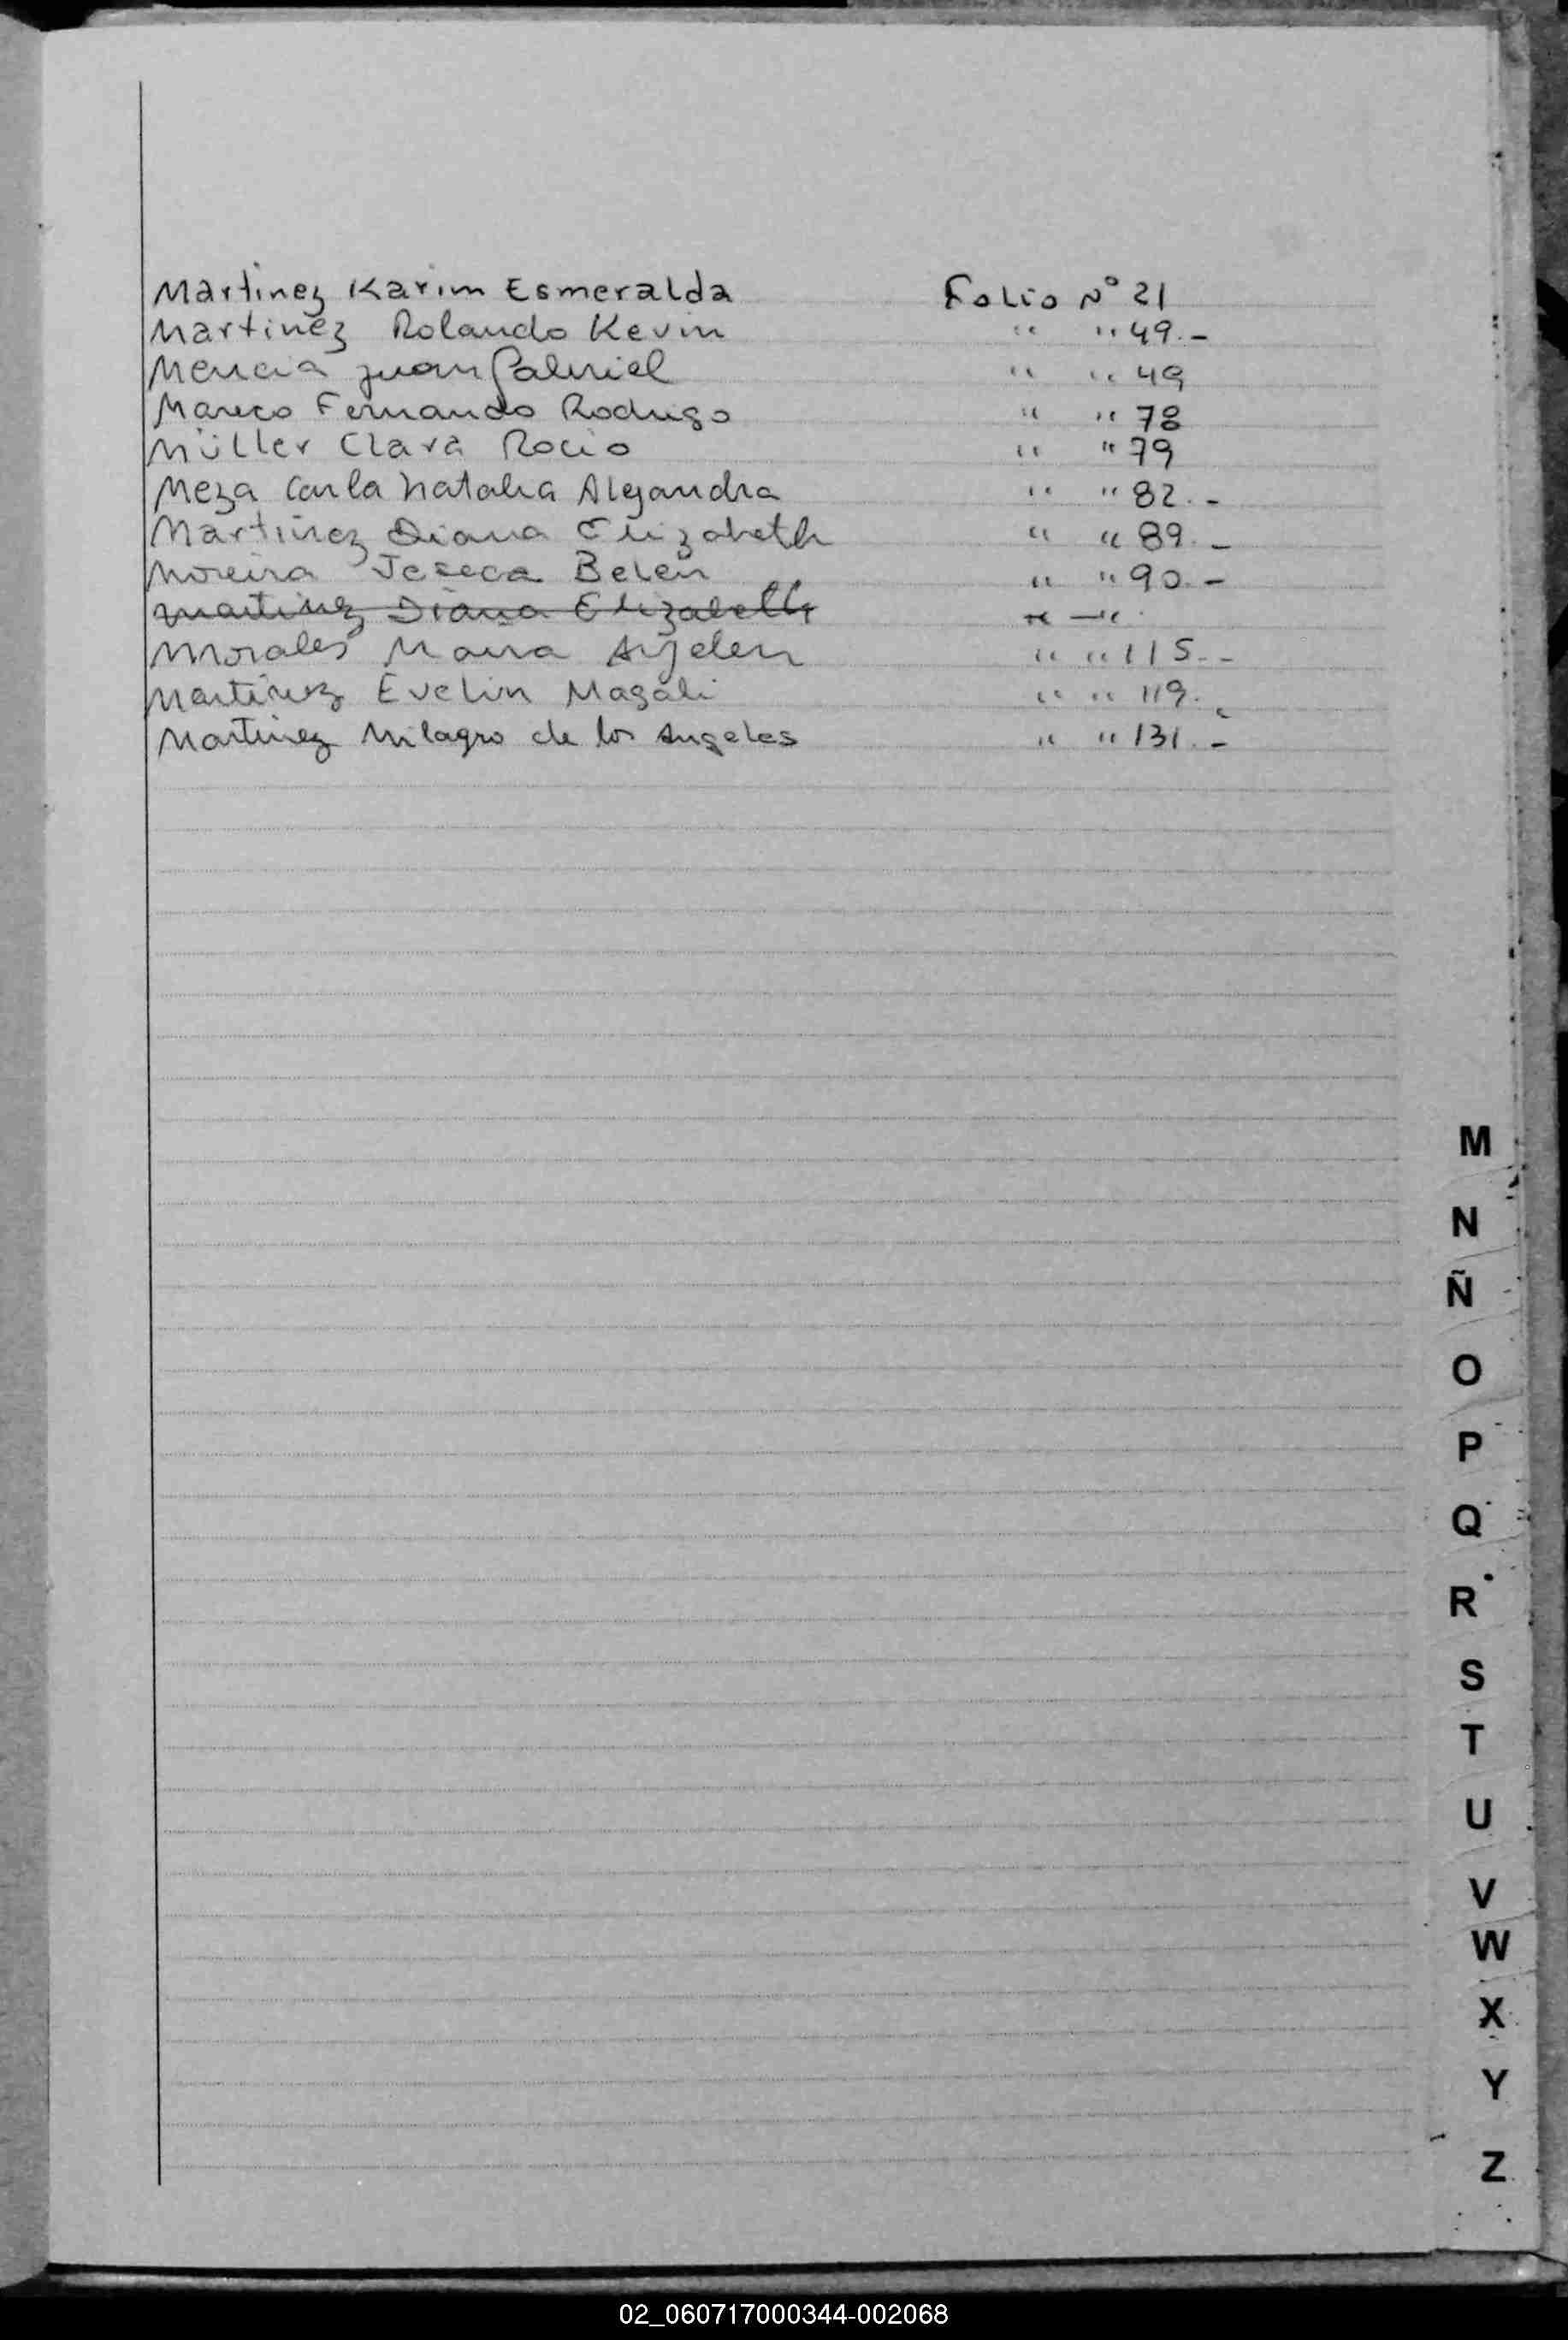 Martinez Karim Esmeralda Folio N° 21
Martinez Rolando Kevin " " 49.-
Mencia Juan Gabriel " " 49
Mareco Fernando Rodrigo " " 78
Müller Clara Rocio " " 79
Meza Carla Natalia Alejandra " " 82.-
Martinez Diana Elizabeth " " 89.-
Moreira Jeseca Belen " " 90.-
Martinez Diana Elizabeth " — "
Morales Maria Ayelen " " 115.-
Martinez Evelin Magali " " 119.
Martinez Milagro de los Angeles " " 131.-
M
N
Ñ
O
P
Q
R
S
T
U
V
W
X
Y
Z
02_060717000344-002068